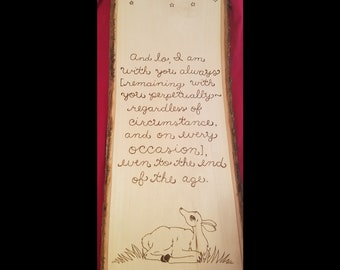 And lo, I am
with you always
[remaining with
you perpetually~
regardless of
circumstance,
and on every
occasion],
even to the end
of the age.